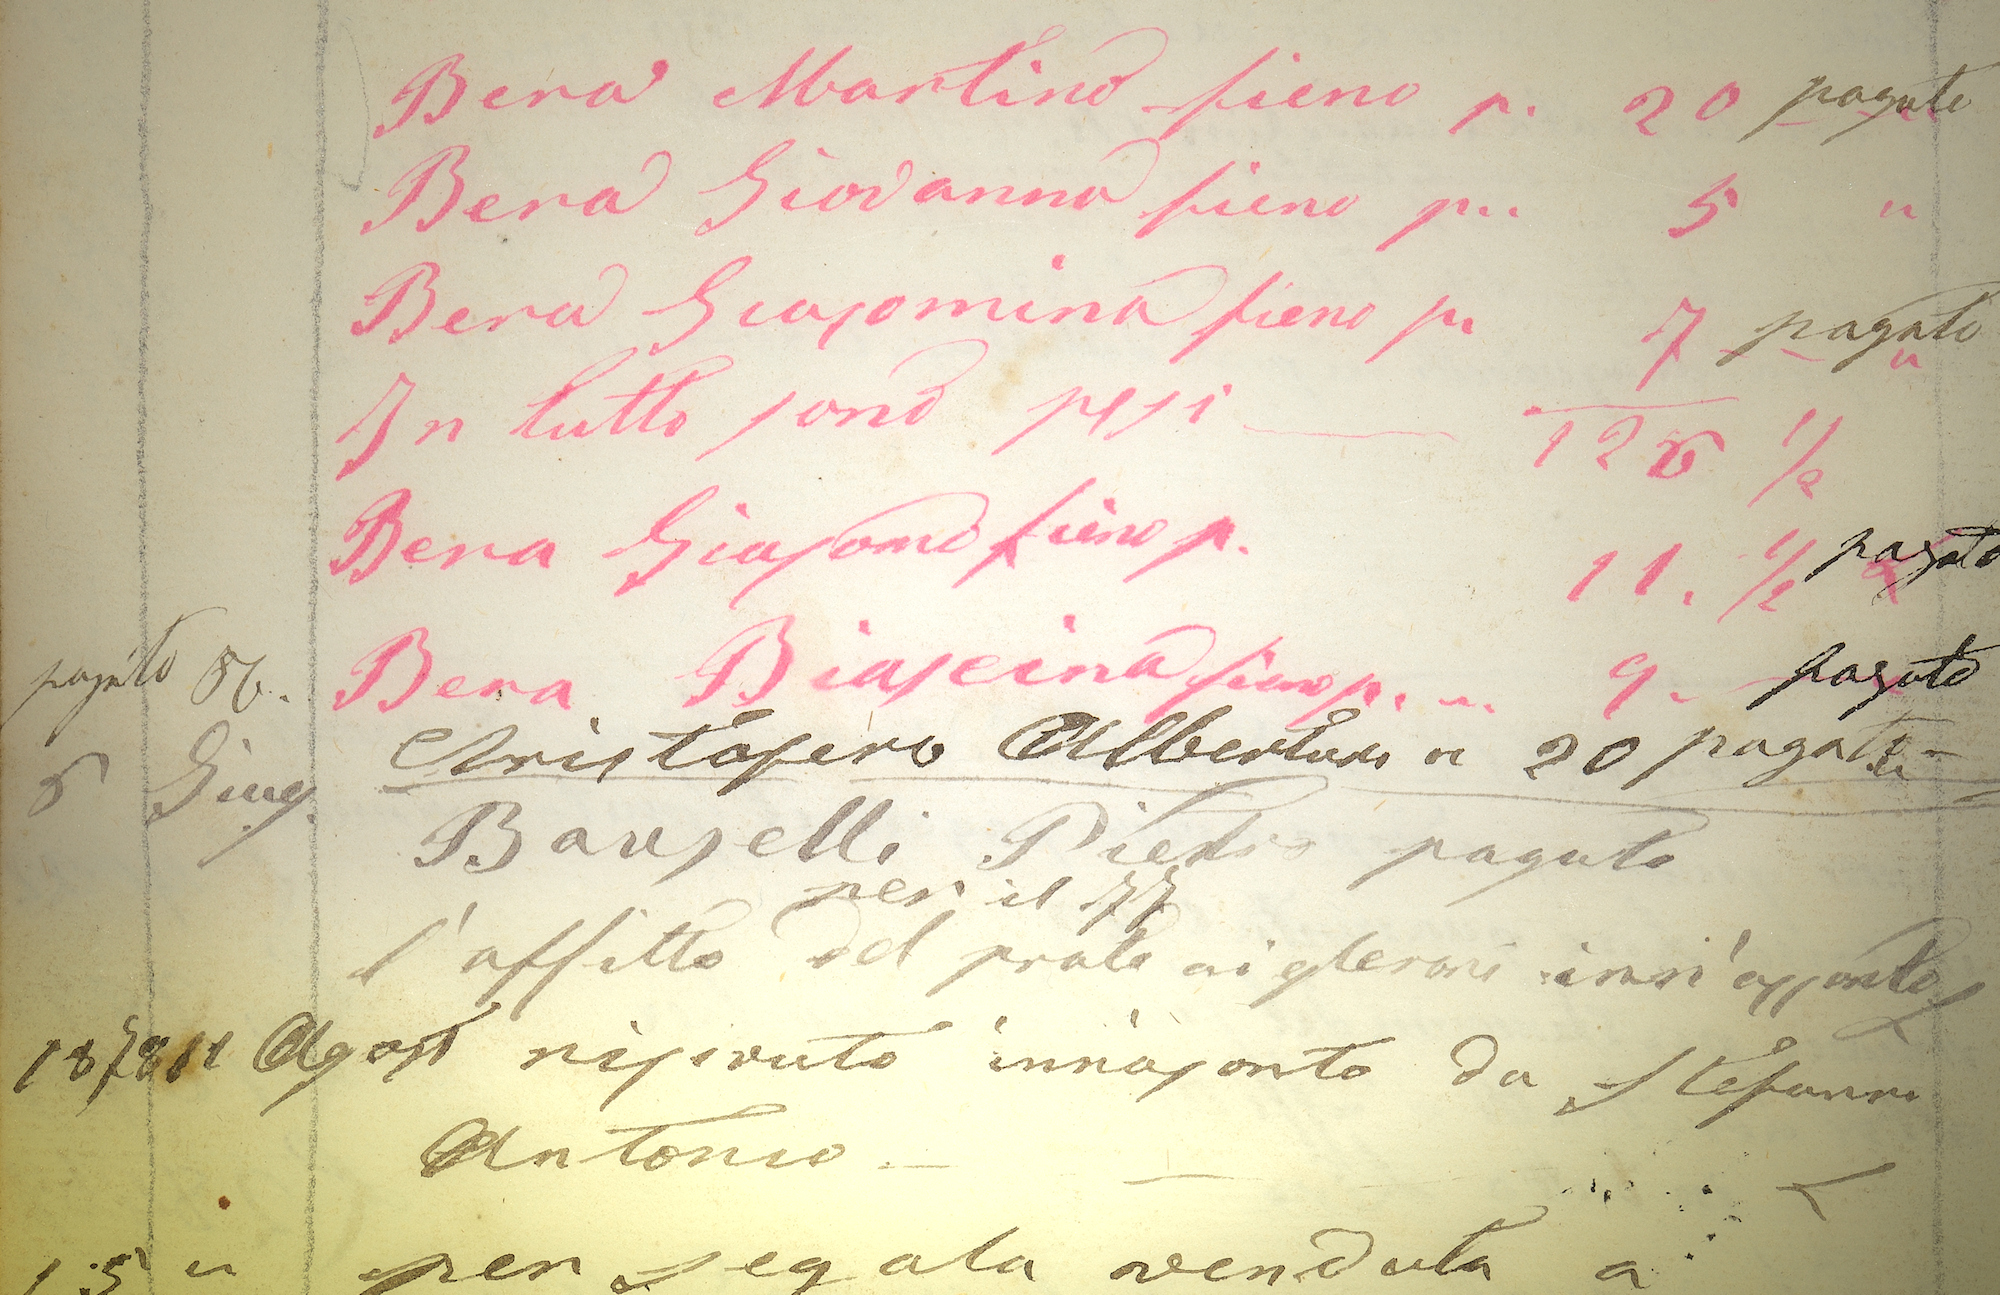 Bera Martino fieno p. 20 pagato
Bera Giovanna fieno p.. 5 "
Bera Giacomina fieno p. 7 pagato "
In tutto sono pesi 126 1/2
Bera Giacomo fieno p. 11. 1/2 pagato
pagato 86. Bera Biaseina fieno p. " 9. pagato
Cristofero Albertini n 20 pagato
6 Giug. Bauselli Pietro pagato
per il 77
l'affitto del prato ai
1878 11 Agost ricevuto inn'aconto da Steffani
Antonio
15 " per segala venduta a